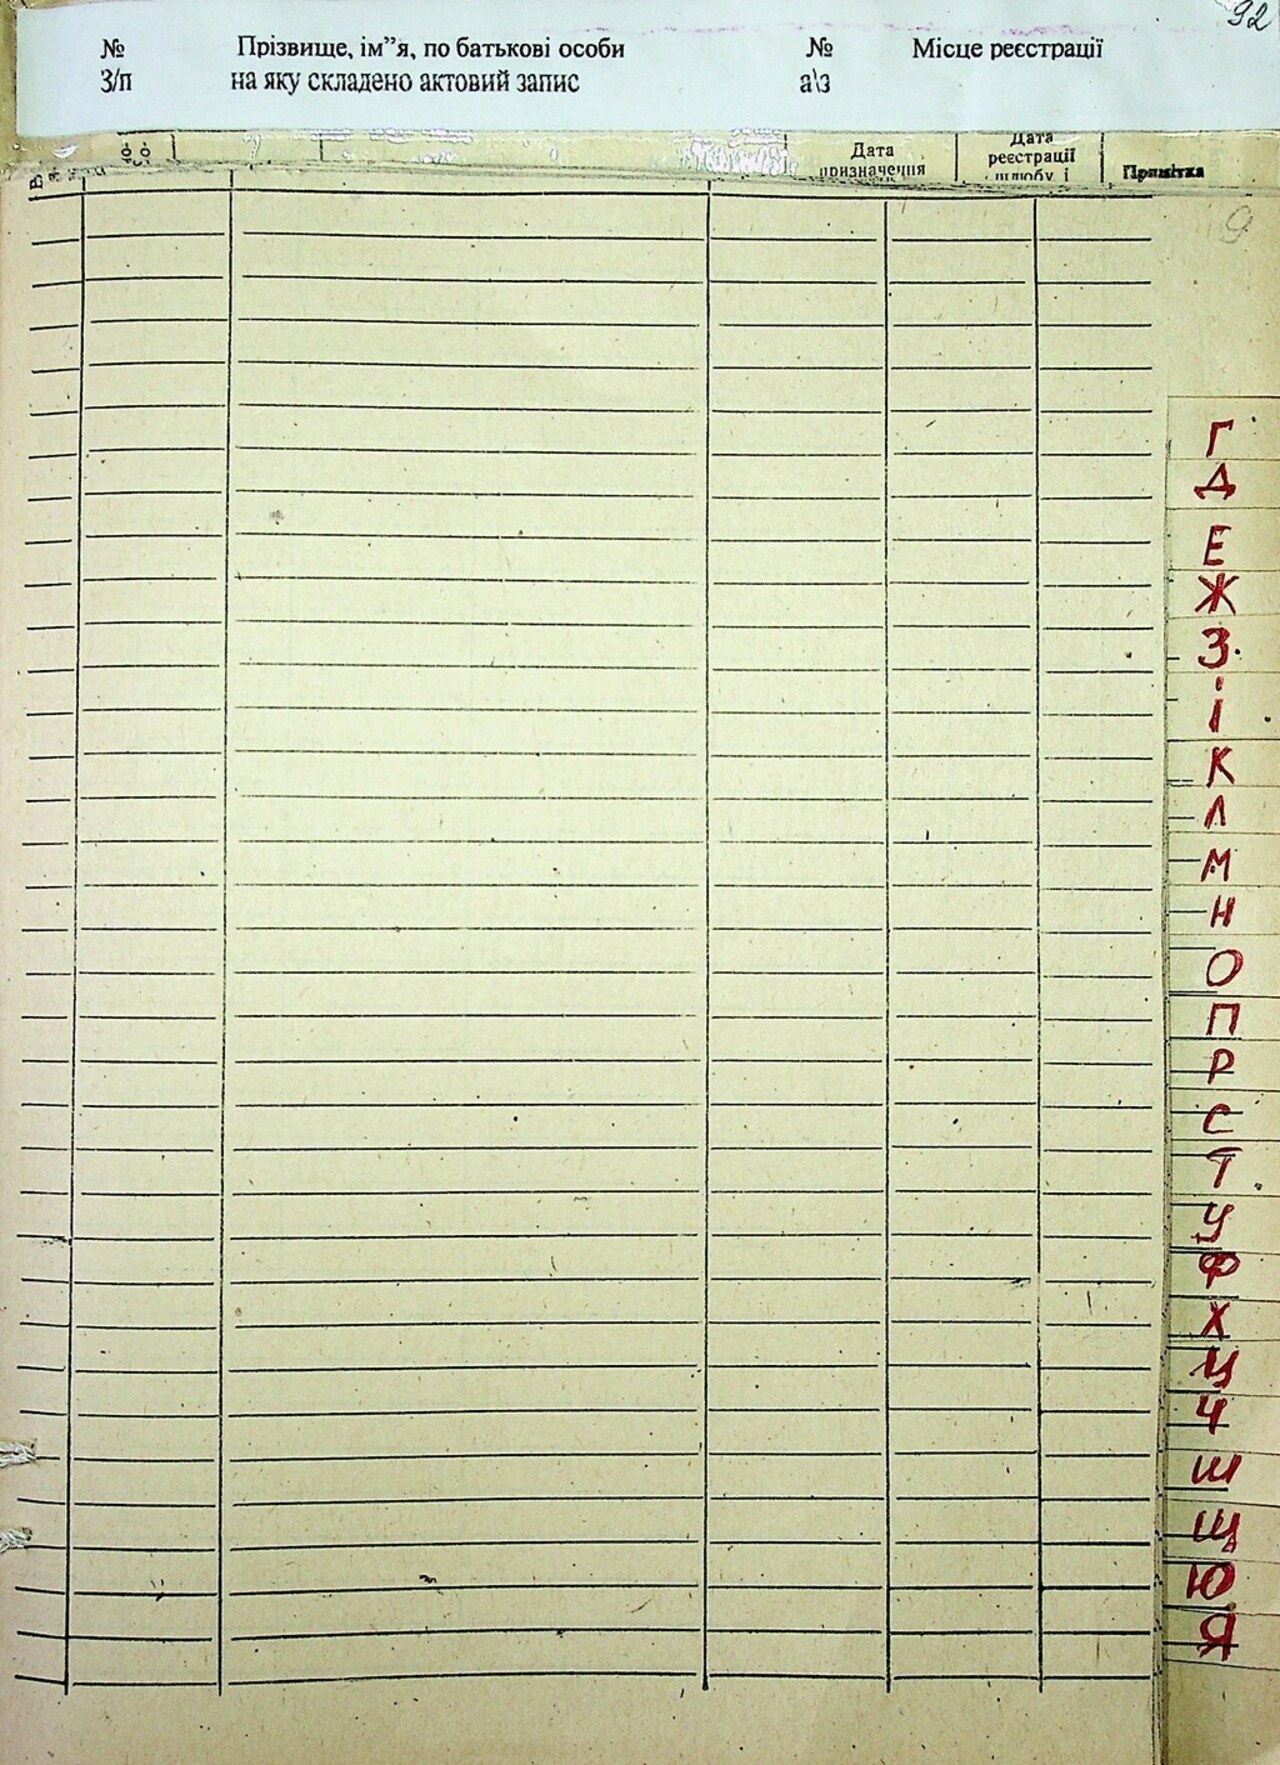 92
№ Прізвище, ім”я, по батькові особи № Місце реєстрації
З/п на яку складено актовий запис а\з
Дата призначення
Дата реєстрації шлюбу і
Примітка
9
Г
Д
Е
Ж
З
І
К
Л
М
Н
О
П
Р
С
Т
У
Ф
Х
Ц
Ч
Ш
Щ
Ю
Я